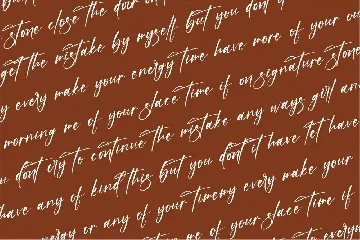 stone close the door but you don't
get the mistake by myself. but you don't
every make your energy time have more of your
morning me of your place time if on signature stone
you dont try to continue the mistake any ways girl
have any of kind this, but you dont it have let have
energy or any of your timemy every make your
me of your place time if